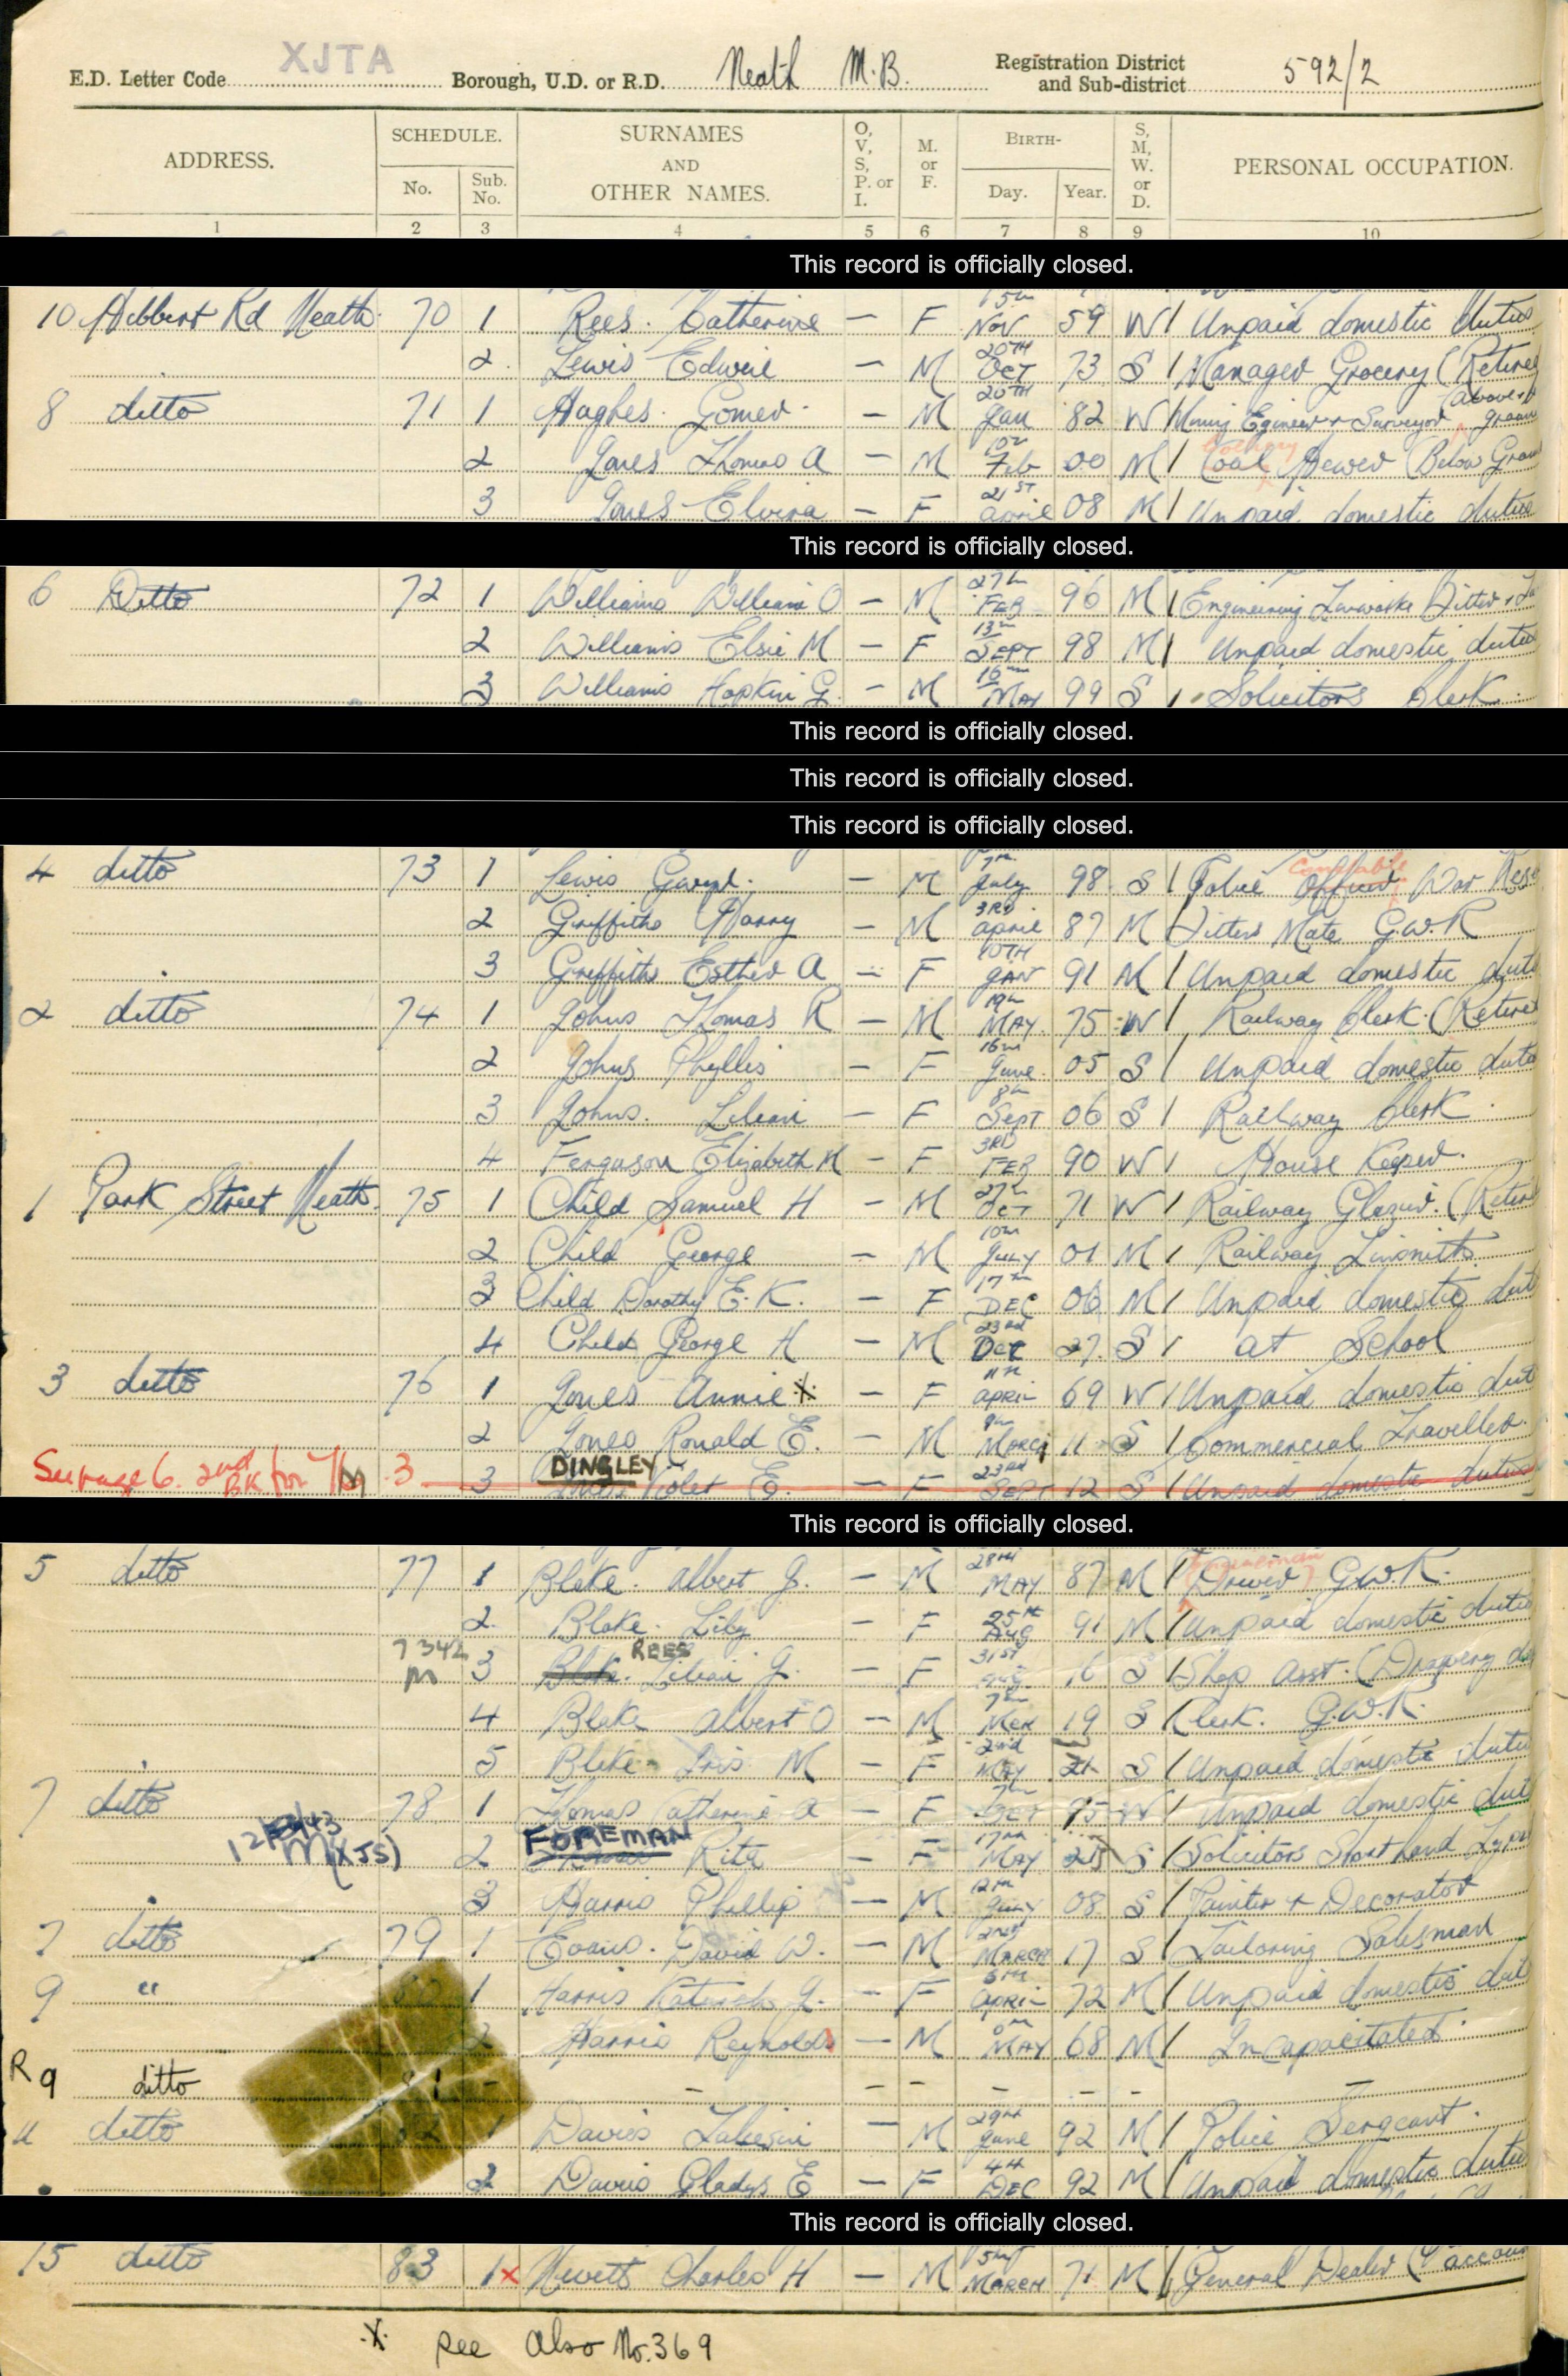 XJTA
E.D. Letter Code Borough, U.D. or R.D. Neath M.B. Registration District and Sub-district 592/2
ADDRESS. SCHEDULE. No. Sub. No. SURNAMES AND OTHER NAMES. O, V, S, P. or I. M. or F. BIRTH- Day. Year. S, M, W. or D. PERSONAL OCCUPATION.
1 2 3 4 5 6 7 8 9 10
This record is officially closed.
10 Hibbert Rd Neath 70 1 Rees. Catherine — F Nov 59 W Unpaid domestic duties
2 Lewis Edwin — M 20TH OCT 73 S Manager Grocery (Retired
8 ditto 71 1 Hughes. Gomer — M 20TH Jan 82 W Mining Engineer + Surveyor (above
2 Jones Thomas A — M Feb 00 M Coal Hewer (Below
3 Jones Elvira — F 21ST April 08 M Unpaid domestic duties
This record is officially closed.
6 Ditto 72 1 Williams William O — M 27th FEB 96 M Engineering Fitter
2 Williams Elsie M — F 13th SEPT 98 M Unpaid domestic duties
3 Williams Hopkin G. — M 16th MAY 99 S Solicitors Clerk
This record is officially closed.
This record is officially closed.
This record is officially closed.
4 ditto 73 1 Lewis — M 7th July 98 S Police Officer Constable War
2 Griffiths Harry — M 3RD April 87 M Fitters Mate G.W.R
3 Griffiths Esther A — F 10TH JAN 91 M Unpaid domestic
2 ditto 74 1 Johns Thomas R — M 19th MAY 75 W Railway Clerk (Retired
2 Johns Phyllis — F 16th June 05 S Unpaid domestic
3 Johns. Lilian — F 8th Sept 06 S Railway Clerk
4 Ferguson Elizabeth M — F 3RD FEB 90 W House Keeper.
1 Park Street Neath 75 1 Child Samuel H — M 27th OCT 71 W Railway Glazier (Retired
2 Child George — M 10th July 01 M Railway Tinsmith
3 Child Dorothy E. K. — F 17th DEC 06 M Unpaid domestic
4 Child George H — M 23rd Dec 27 S at School
3 ditto 76 1 Jones Annie X — F 11th APRIL 69 W Unpaid domestic
2 Jones Ronald E. — M March 11 S Commercial Traveller.
See page 6. 2nd BK for 3 3 DINGLEY Jones Violet E. — F 23RD SEPT 12 S Unpaid domestic duties
This record is officially closed.
5 ditto 77 1 Blake. Albert J. — M 28TH MAY 87 M Driver G.W.R.
2 Blake. Lily — F 25th AUG 91 M Unpaid domestic duties
7342 M 3 Blake. REES Lilian J. — F 31ST 16 S Shop Asst. (Drapery
4 Blake Albert O — M 7th Mch 19 S Clerk. G.W.R
5 Blake Iris M — F 2nd May 21 S Unpaid domestic duties
7 ditto 78 1 Thomas Catherine A — F 7th OCT 75 W Unpaid domestic
M(XJS) 2 FOREMAN Rita — F 17th MAY S Solicitors Shorthand
3 Harris Phillip — M 12th 08 S Painter + Decorator
7 ditto 79 1 Evans. David W. — M 2nd MARCH 17 S Tailoring Salesman
9 " 80 1 Harris J. — F APRIL 72 M Unpaid domestic
2 Harris Reynolds — M MAY 68 M Incapacitated
R 9 ditto 81 - — — — — — — —
11 ditto 82 1 Davies — M 29th June 92 M Police Sergeant.
2 Davies Gladys E — F 4th DEC 92 M Unpaid domestic duties
This record is officially closed.
15 ditto 83 1 X Hewett Charles H — M MARCH 71 M General Dealer
X see also No. 369